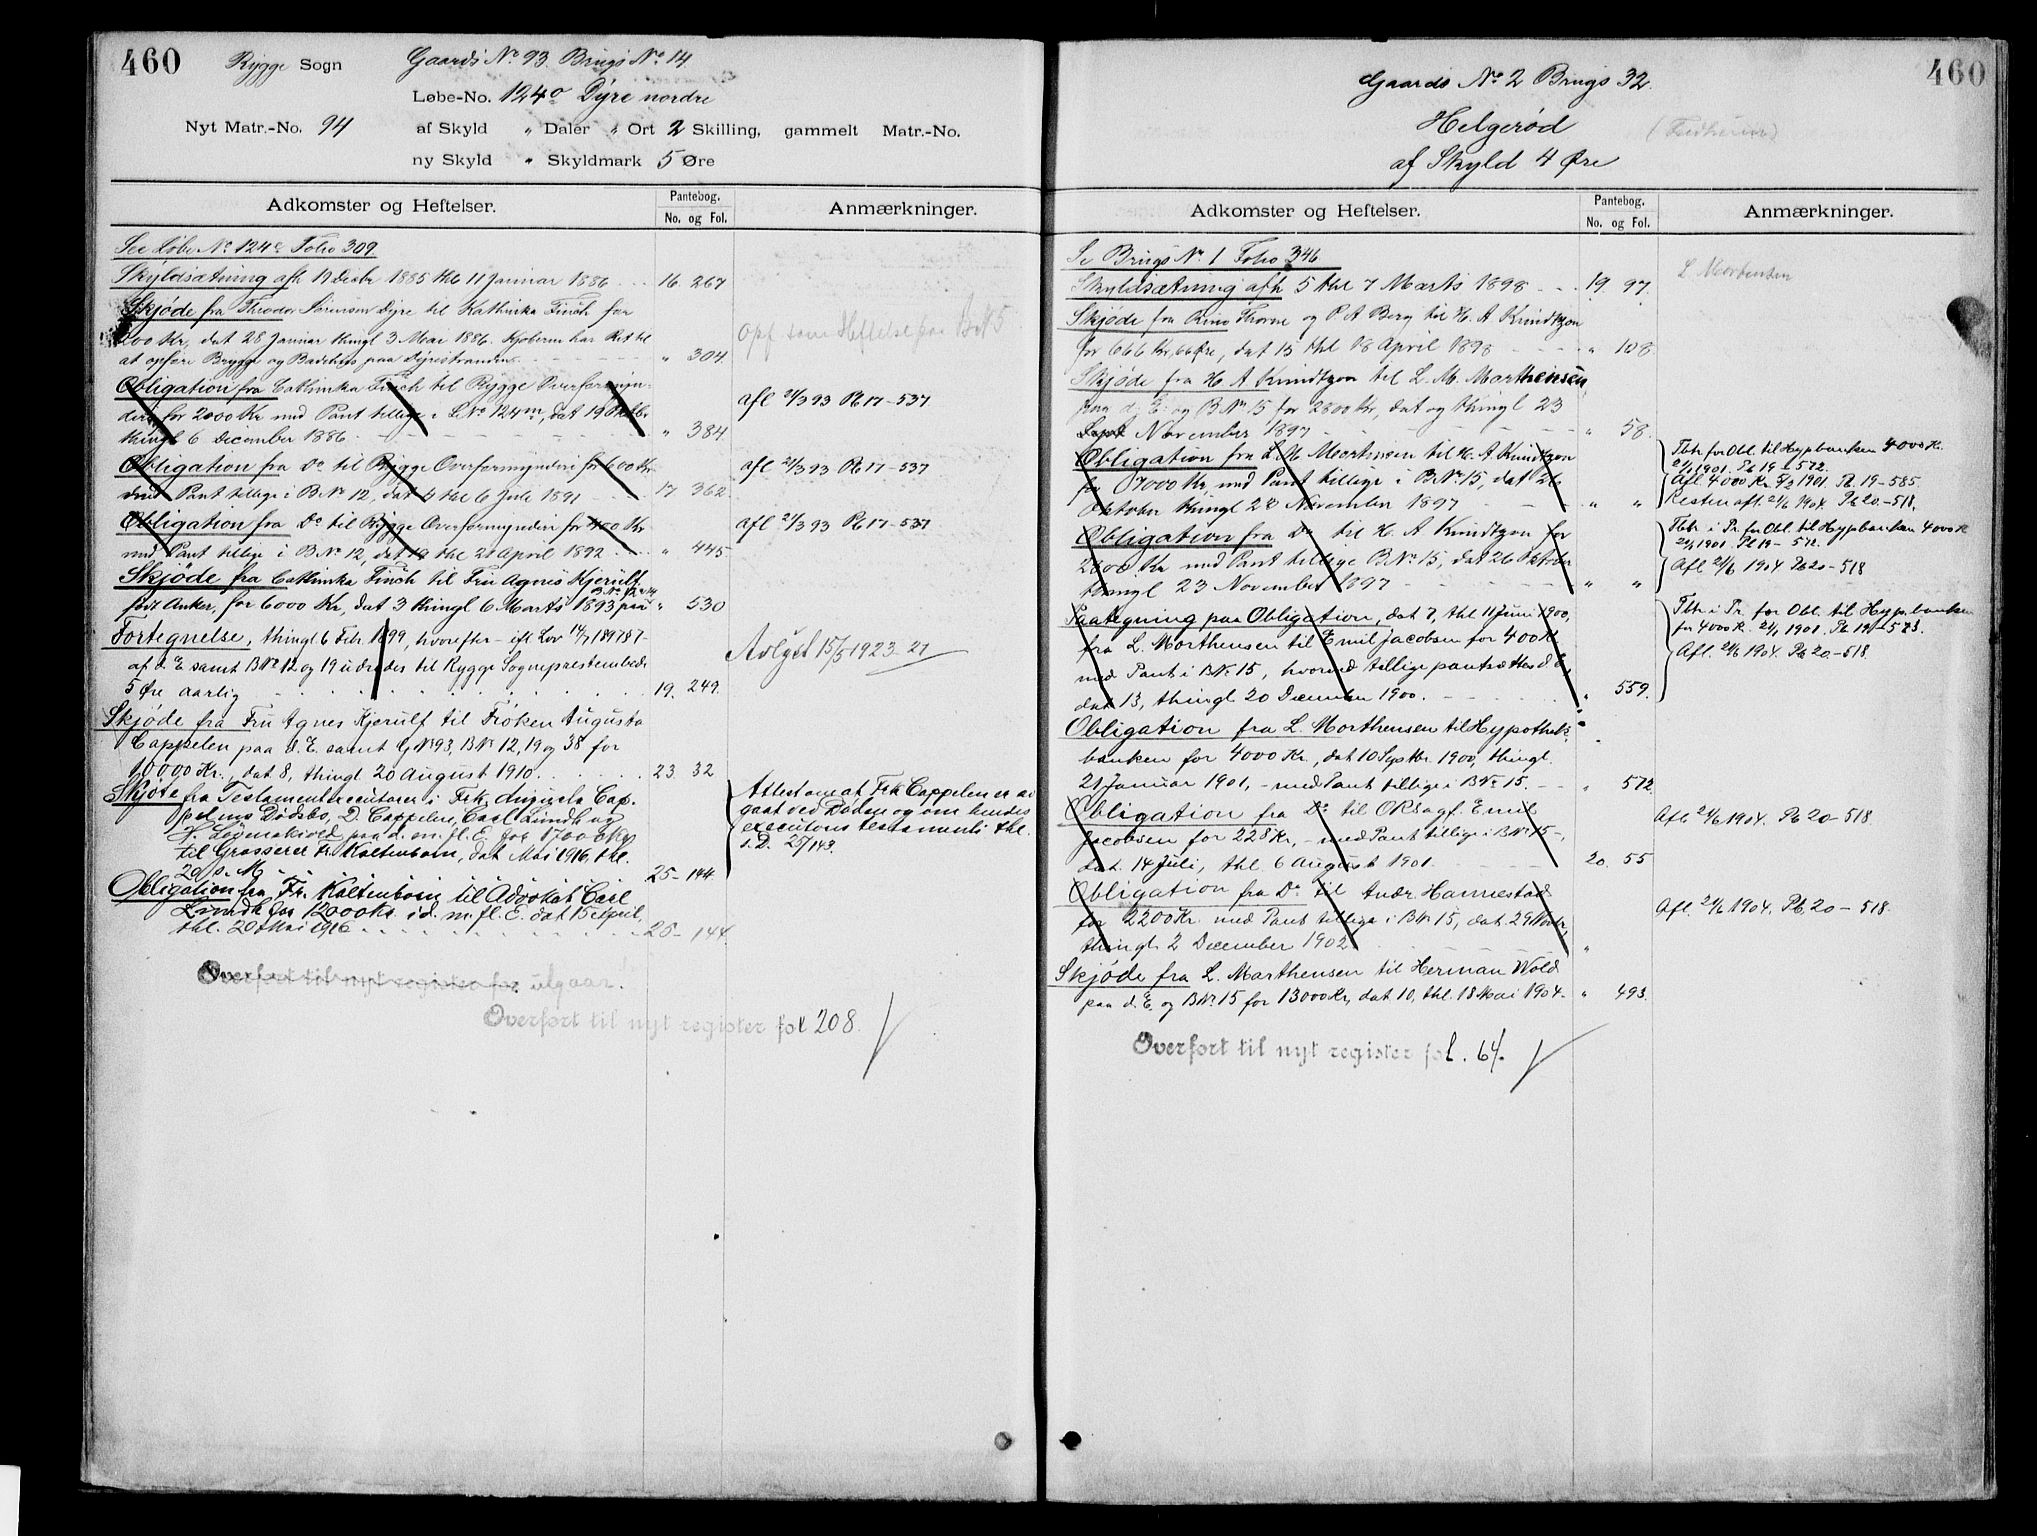 460
Rygge Sogn
Gaards No 93 Brugs No 14
Løbe-No. 124o Dyre nordre
Nyt Matr.-No. 94
af Skyld „ Daler „ Ort 2 Skilling, gammelt Matr.-No.
ny Skyld „ Skyldmark 5 Øre
Adkomster og Heftelser.
Pantebog.
No. og Fol.
Anmærkninger.
See Løbe No 124 Folio 309
Skyldsætning afh 19 Decbr 1885 thl 11 Januar 1886 16 267
Skjøde fra Theodor Sørensen Dyre til Kathinka Finch for
200 Kr, dat 28 Januar thingl 3 Mai 1886. Kjøberen har Ret til
at opføre Brygge og Badehus paa Dyrestranden „ 304
Opf som Heftelse paa BN 5
Obligation fra Cathinka Finch til Rygge Overformyn-
deri for 2000 Kr med Pant tillige i LNo 124m, dat 19 Oktbr
thingl 6 December 1886 „ 384
afl 21/3 93 Pb 17-537
Obligation fra Do til Rygge Overformynderi for 600 Kr
med Pant tillige i BNo 12, dat 4 thl 6 Juli 1891 17 362
afl 21/3 93 Pb 17-537
Obligation fra Do til Rygge Overformynderi for 400 Kr
med Pant tillige i BNo 12, dat 19 thl 20 April 1892 „ 445
afl 21/3 93 Pb 17-537
Skjøde fra Cathinka Finch til Fru Agnes Kjerulf
født Anker, for 6000 Kr, dat 3 thingl 6 Marts 1893 paa BNo 12 „ 530
Fortegnelse, thingl 6 Febr 1899, hvorefter - ifl Lov 14/7 1897 § 7 -
af d. E samt BNo 12 og 19 udredes til Rygge Sognepræstembede
5 Øre aarlig 19. 249.
Avlyst 15/5 1923. 27
Skjøde fra Fru Agnes Kjerulf til Frøken Augusta
Cappelen paa d. E. samt GNo 93, BNo 12, 19 og 38 for
10000 Kr., dat 8, thingl 20 August 1910 23 32
Skjøte fra Testamentexecutorer i Frk. Augusta Cap-
pelens Dødsbo, D. Cappelen, Carl Lundh og
H. Løvenskiold paa d. m. fl. E. for 17000 Kr
til Grosserer Fr. Kaltenborn, dat Mai 1916, thl.
20 s. M. 25-144
Attest om at Frk Cappelen er av-
gaat ved Døden og om hendes
executors testamenti thl.
s. D. 25/143.
Obligation fra Fr. Kaltenborn til Advokat Carl
Lundh for 12000 Kr i d. m. fl. E. dat 15 April,
thl. 20 Mai 1916 25-144.
Overført til nyt register for utgaar.
Overført til nyt register fol 208.
460
Gaards No 2 Brugs 32.
Helgerød
(Fredheim)
af Skyld 4 Øre
Adkomster og Heftelser.
Pantebog.
No. og Fol.
Anmærkninger.
Se Brugs No 1 Folio 346
L Mortensen
Skyldsætning afh 5 thl 7 Marts 1898 19. 97.
Skjøde fra Rino Thorne og P A Berg til H. A Knudtzon
for 666 Kr, 66 Øre, dat 15 thl 18 April 1898 „ 108.
Skjøde fra H A Knudtzon til L. M. Marthensen,
paa d. E. og BNo 15 for 2800 Kr, dat og thingl 23
November 1897 „ 58.
Obligation fra L M Marthensen til H. A Knudtzon
for 7000 Kr, med Pant tillige i BNo 15, dat 26
Oktober thingl 23 November 1897 „ „
Tbtr for Obl. til Hypbanken 4000 K.
21/1 1901. Pb 19-572.
Afl. 4000 Kr. 5/2 1901. Pb. 19-585.
Resten afl. 21/6 1904. Pb 20.-518.
Obligation fra Do til H. A Knudtzon for
2800 Kr med Pant tillige BNo 15, dat 26 Oktober
thingl 23 November 1897 „ „
Tbtr i Pr. for Obl. til Hypbanken 4000 K
21/1 1901. Pb 19-572.
Afl 21/6 1904 Pb 20-518
Paategning paa Obligation, dat 7, thl 11 Juni 1900,
fra L. Marthensen til Emil Jacobsen for 400 Kr
med Pant i BNo 15, hvorved tillige pantsættes d. E.,
dat 13, thingl 20 December 1900. „ 559.
Tbtr i Pr. for Obl. til Hypbanken
for 4000 K. 21/1 1901. Pb 19-573.
Afl. 21/6 1904. Pb 20.-518.
Obligation fra L. Marthensen til Hypothek-
banken for 4000 Kr., dat 10 Septbr. 1900, thingl.
21 Januar 1901, - med Pant tillige i BNo 15. „ 572.
Obligation fra Do til ORsagf. Emil
Jacobsen for 228 Kr, - med Pant tillige i BNo 15 -,
dat. 14 Juli, thl. 6 August 1901. 20. 55
Afl. 21/6 1904. Pb 20-518
Obligation fra Do til Andr. Hannestad
for 2200 Kr. med Pant tillige i BNo 15, dat. 29 Novbr,
thingl. 2 December 1902 „
Afl. 21/6 1904. Pb. 20-518.
Skjøde fra L. Marthensen til Herman Wold
paa d. E. og BNo 15 for 13000 Kr, dat 10, thl. 18 Mai 1904. „ 493.
Overført til nyt register fol. 64.